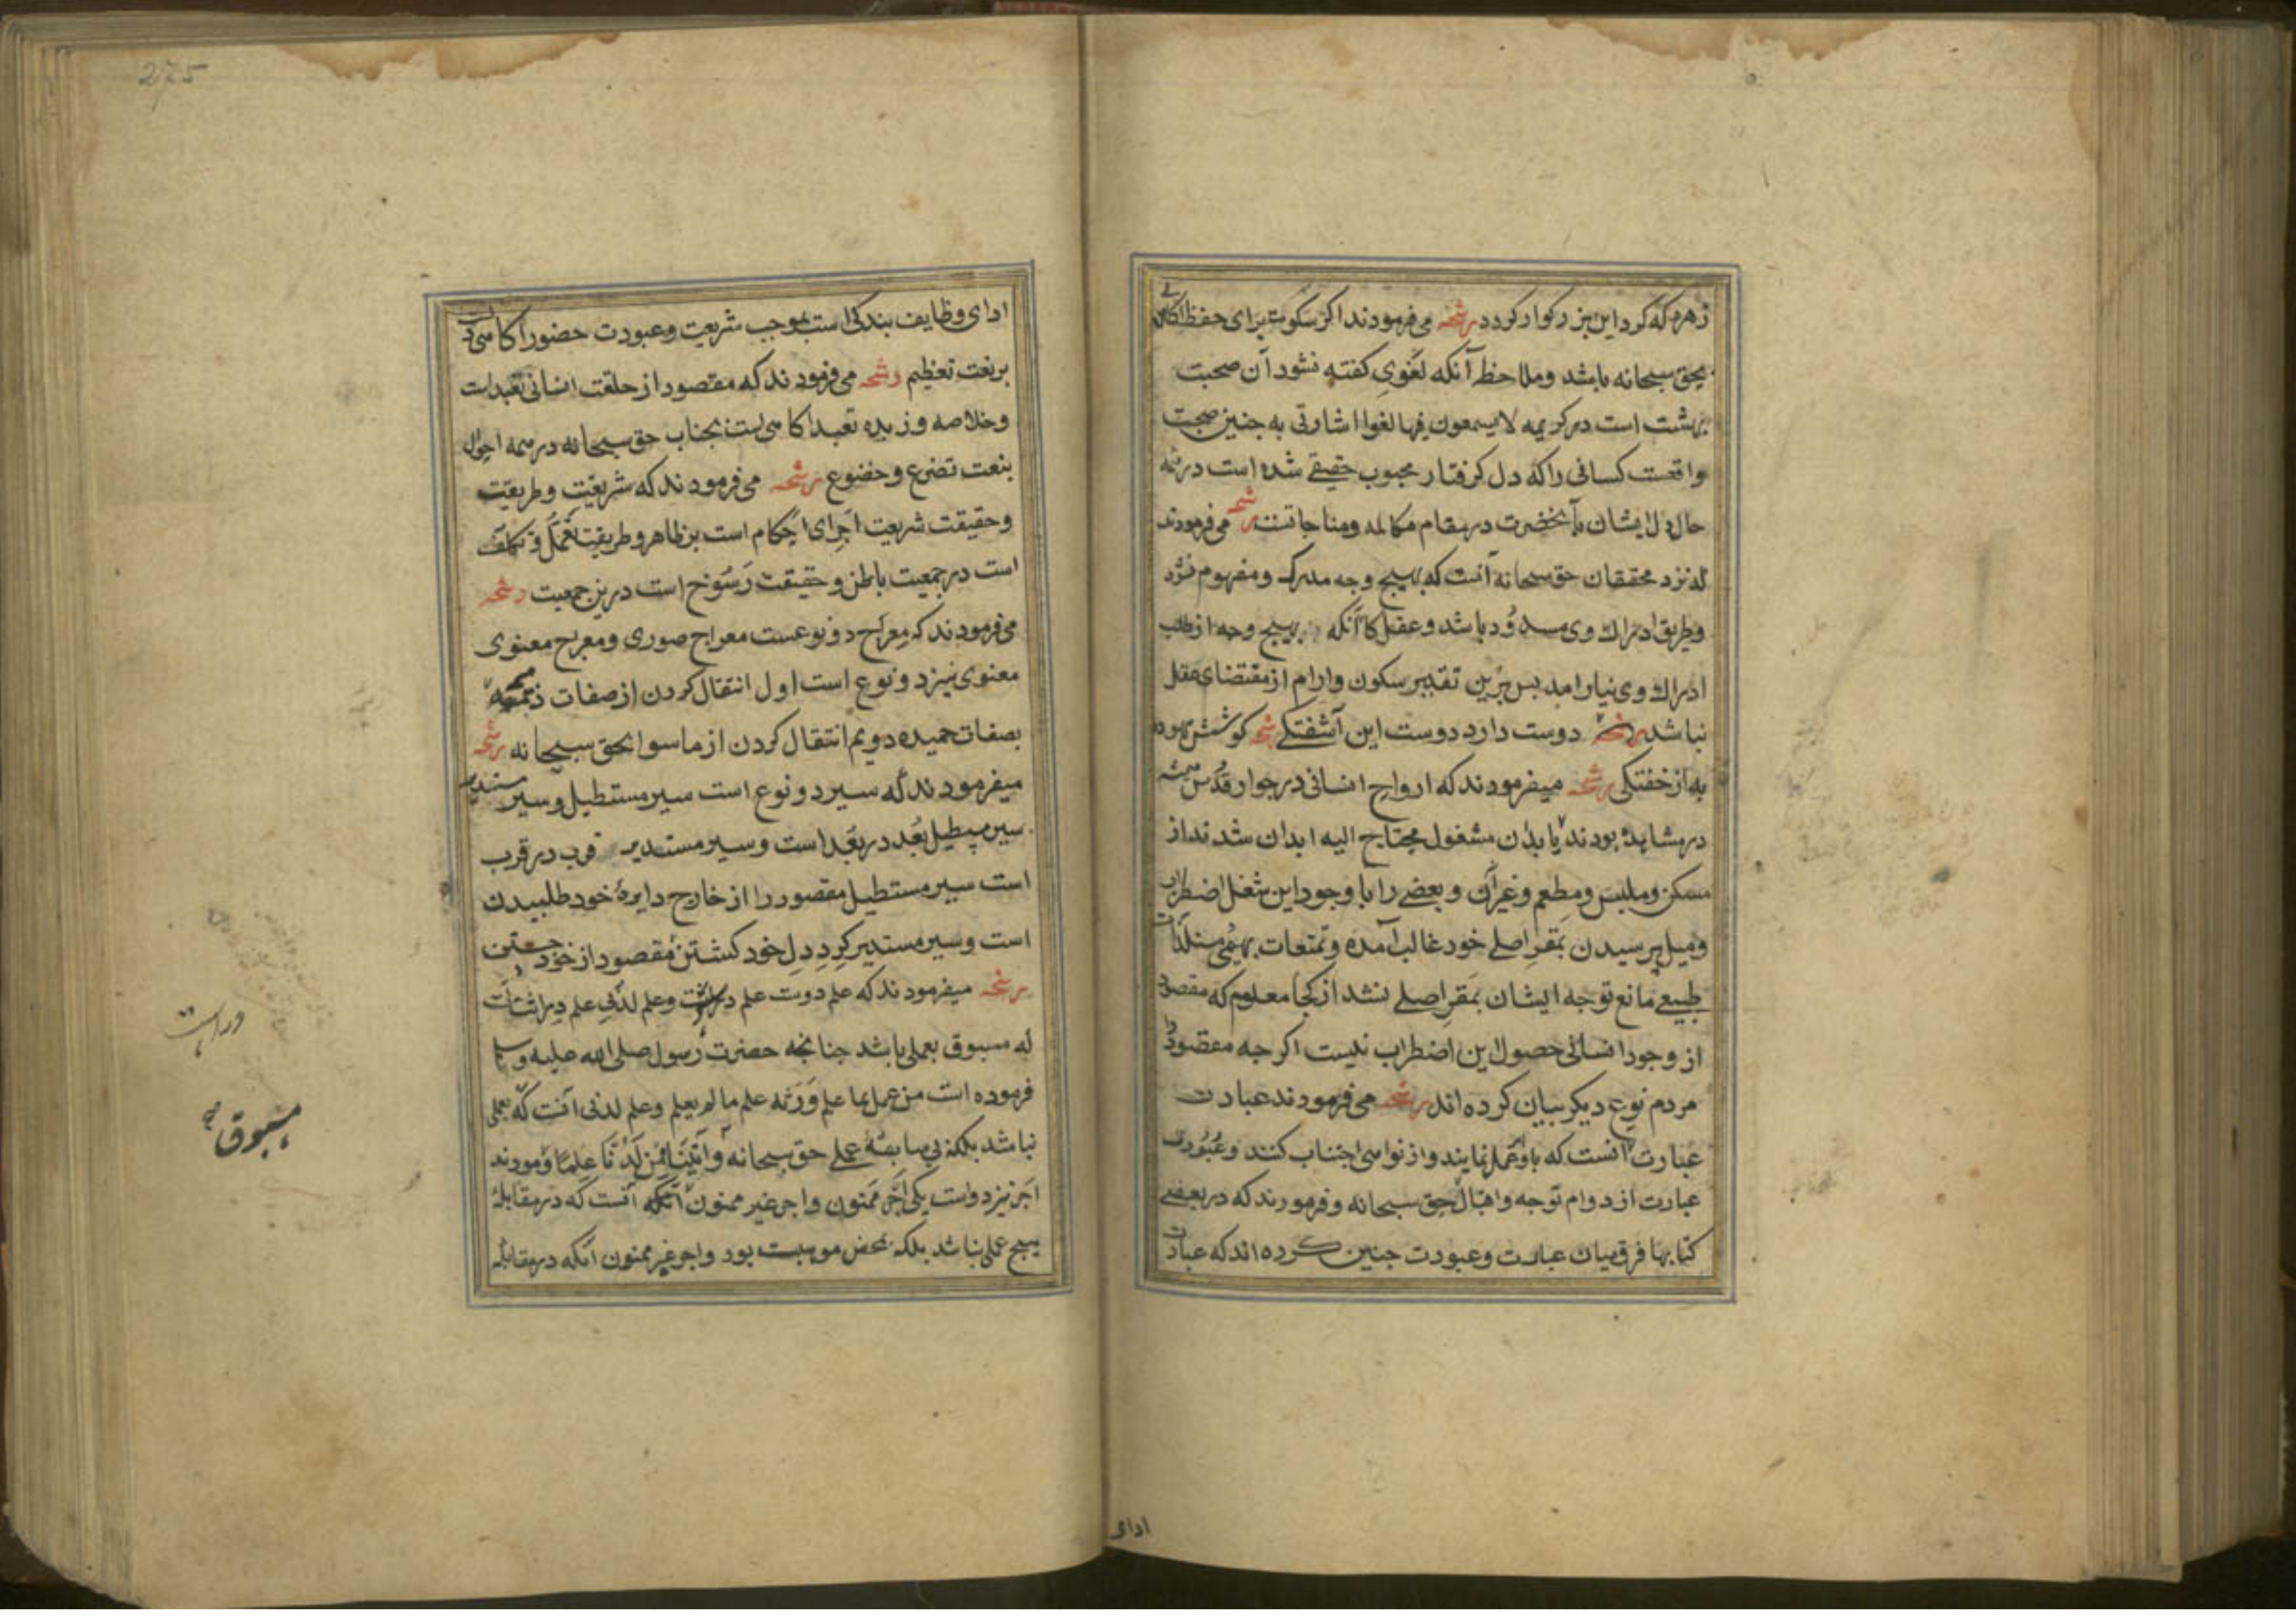 زهره که کرد این بزرکوار کردد رشحه می فرمودند اکر سکوت برای حفظ اکاهی
بحق سبحانه باشد وملاحظ آنکه لغوی کفته نشود آن صحبت
بهشت است در کریمه لا یسمعون فیها لغوا اشارتی به جنین صحبت
واقعست کسانی را که دل کرفتار محبوب حقیقی شده است در همه
حال دل ایشان بآنحضرت در مقام مکالمه ومناجاتست رشحه می فرمودند
که نزد محققان حق سبحانه آنست که بهیج وجه مدرک ومفهوم نشود
وطریق ادراک وی مسدود باشد وعقل کا آنکه بهیج وجه از طلب
ادراک وی نیارامد بس برین تقدیر سکون وارام از مقتضای عقل
نباشد رشحه دوست دارد دوست این آشفتکی رشحه کوشش بیهوده
به از خفتکی رشحه میفرمودند که ارواح انسانی در جوار قدس همیشه
در مشاهده بودند با بدن مشغول محتاج الیه ابدان شدند از
مسکن وملبس ومطعم وغیر آن وبعضی را با وجود این شغل اضطراب
ومیل برسیدن بمقر اصلی خود غالب آمده وتمتعات بهیمی مستلذات
طبیعی مانع توجه ایشان بمقر اصلی نشد از کجا معلوم که مقصود
از وجود انسانی حصول این اضطراب نیست اکر جه مقصود را
مردم نوع دیکر بیان کرده اند رشحه می فرمودند عبادت
عبارت آنست که باوامر عمل نمایند واز نواهی اجتناب کنند وعبودت
عبارت از دوام توجه واقبال بحق سبحانه وفرمودند که در بعضی
کتابها فرق میان عبادت وعبودت جنین کرده اند که عبادت
ادای
275
ادای وظایف بندکی است بموجب شریعت وعبودت حضور اکاهی است
بر نعت تعظیم رشحه می فرمودند که مقصود از خلقت انسانی تعبد است
وخلاصه وزبده تعبد اکاهی است بجناب حق سبحانه در همه احوال
بنعت تضرع وخضوع رشحه می فرمودند که شریعت وطریقت
وحقیقت شریعت اجرای احکام است بر ظاهر وطریقت تعمل وتکلف
است در جمعیت باطن وحقیقت رسوخ است درین جمعیت رشحه
می فرمودند که معراج دو نوعست معراج صوری ومعراج معنوی
معنوی نیز دو نوع است اول انتقال کردن از صفات ذمیمه
بصفات حمیده دویم انتقال کردن از ماسوا بحق سبحانه رشحه
میفرمودند که سیر دو نوع است سیر مستطیل وسیر مستدیر
سیر مستطیل بعد در بعد است وسیر مستدیر قرب در قرب
است سیر مستطیل مقصود را از خارج دایرهٔ خود طلبیدن
است وسیر مستدیر کرد دل خود کشتن ومقصود از خود جستن
رشحه میفرمودند که علم دوست علم دراثت وعلم لدنی علم دراثت آنست
که مسبوق بعملی باشد جنانجه حضرت رسول صلی الله علیه وسلم
فرموده است من عمل بما علم ورثه علم ما لم یعلم وعلم لدنی آنست که بعملی
نباشد بلکه بی سابقهٔ عملی حق سبحانه وآتیناه من لدنا علما وفرمودند
اجر نیز دو است یکی اجر ممنون واجر غیر ممنون آنکه آنست که در مقابلهٔ
هیج عملی نباشد بلکه محض موهبت بود واجر غیر ممنون آنکه در مقابله
دراست
مسبوق